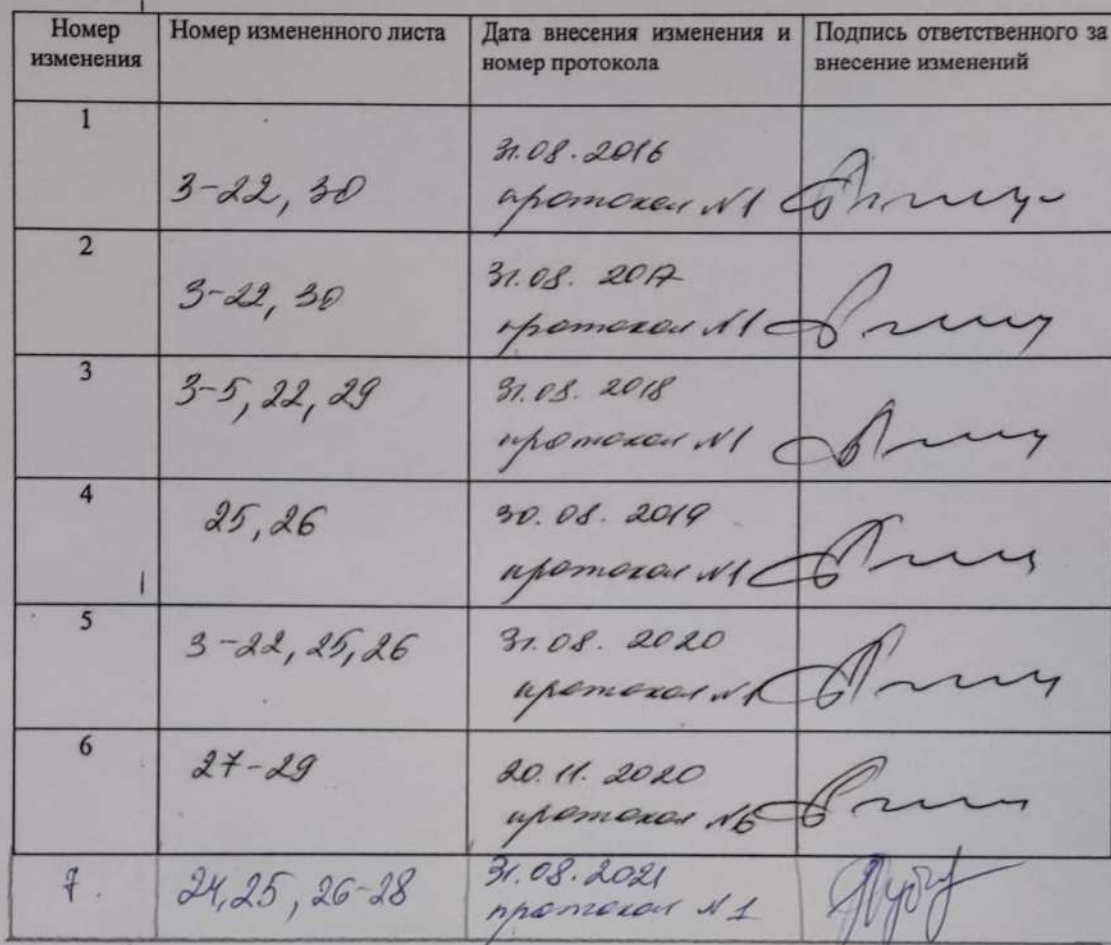 Номер изменения
Номер измененного листа
Дата внесения изменения и номер протокола
Подпись ответственного за внесение изменений
1
3-22, 30
31.08.2016
протокол №1
2
3-22, 30
31.08.2017
протокол №1
3
3-5, 22, 29
31.08.2018
протокол №1
4
25, 26
30.08.2019
протокол №1
5
3-22, 25, 26
31.08.2020
протокол №1
6
27-29
20.11.2020
протокол №6
7.
24, 25, 26-28
31.08.2021
протокол №1